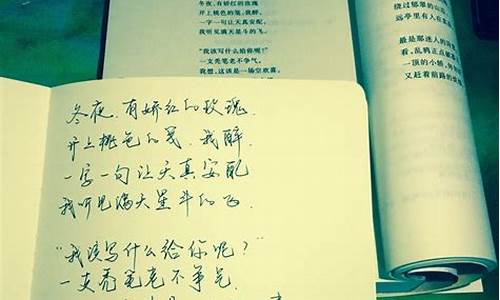 冬夜，有娇红的玫瑰
开上桃色的笺，我醉，
一字一句让天真安配
我听见满天星斗的飞。
“我该写什么给你呢？”
一支秃笔老不争气，
我想，这该是一场空欢喜。
绕过郁翠的山
远亭里有人在
最是那迷人的
看，乱鸦正点
一顶的小轿，
又赶着前路的
冬夜，有娇红的玫瑰
开上桃色的笺，我醉，
一字一句让天真安配
我听见满天星斗的飞
“我该写什么给你呢？”
一支秃笔老不争气，